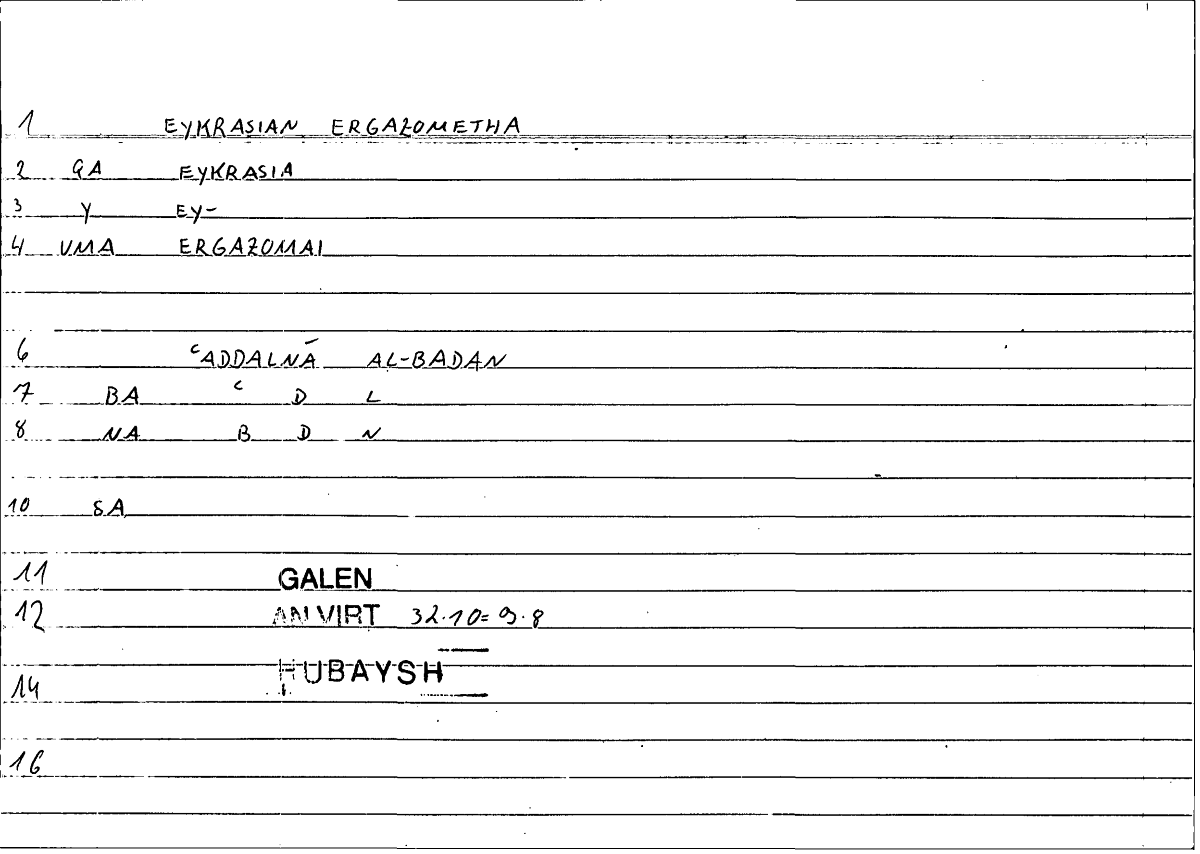 1 EYKRASIAN ERGAZOMETHA
2 GA EYKRASIA
3 Y EY-
4 VMA ERGAZOMAI
6 ʿADDALNĀ AL-BADAN
7 BA ʿ D L
8 NA B D N
10 SA
11 GALEN
12 AN VIRT 32.10=9.8
14 HUBAYSH
16